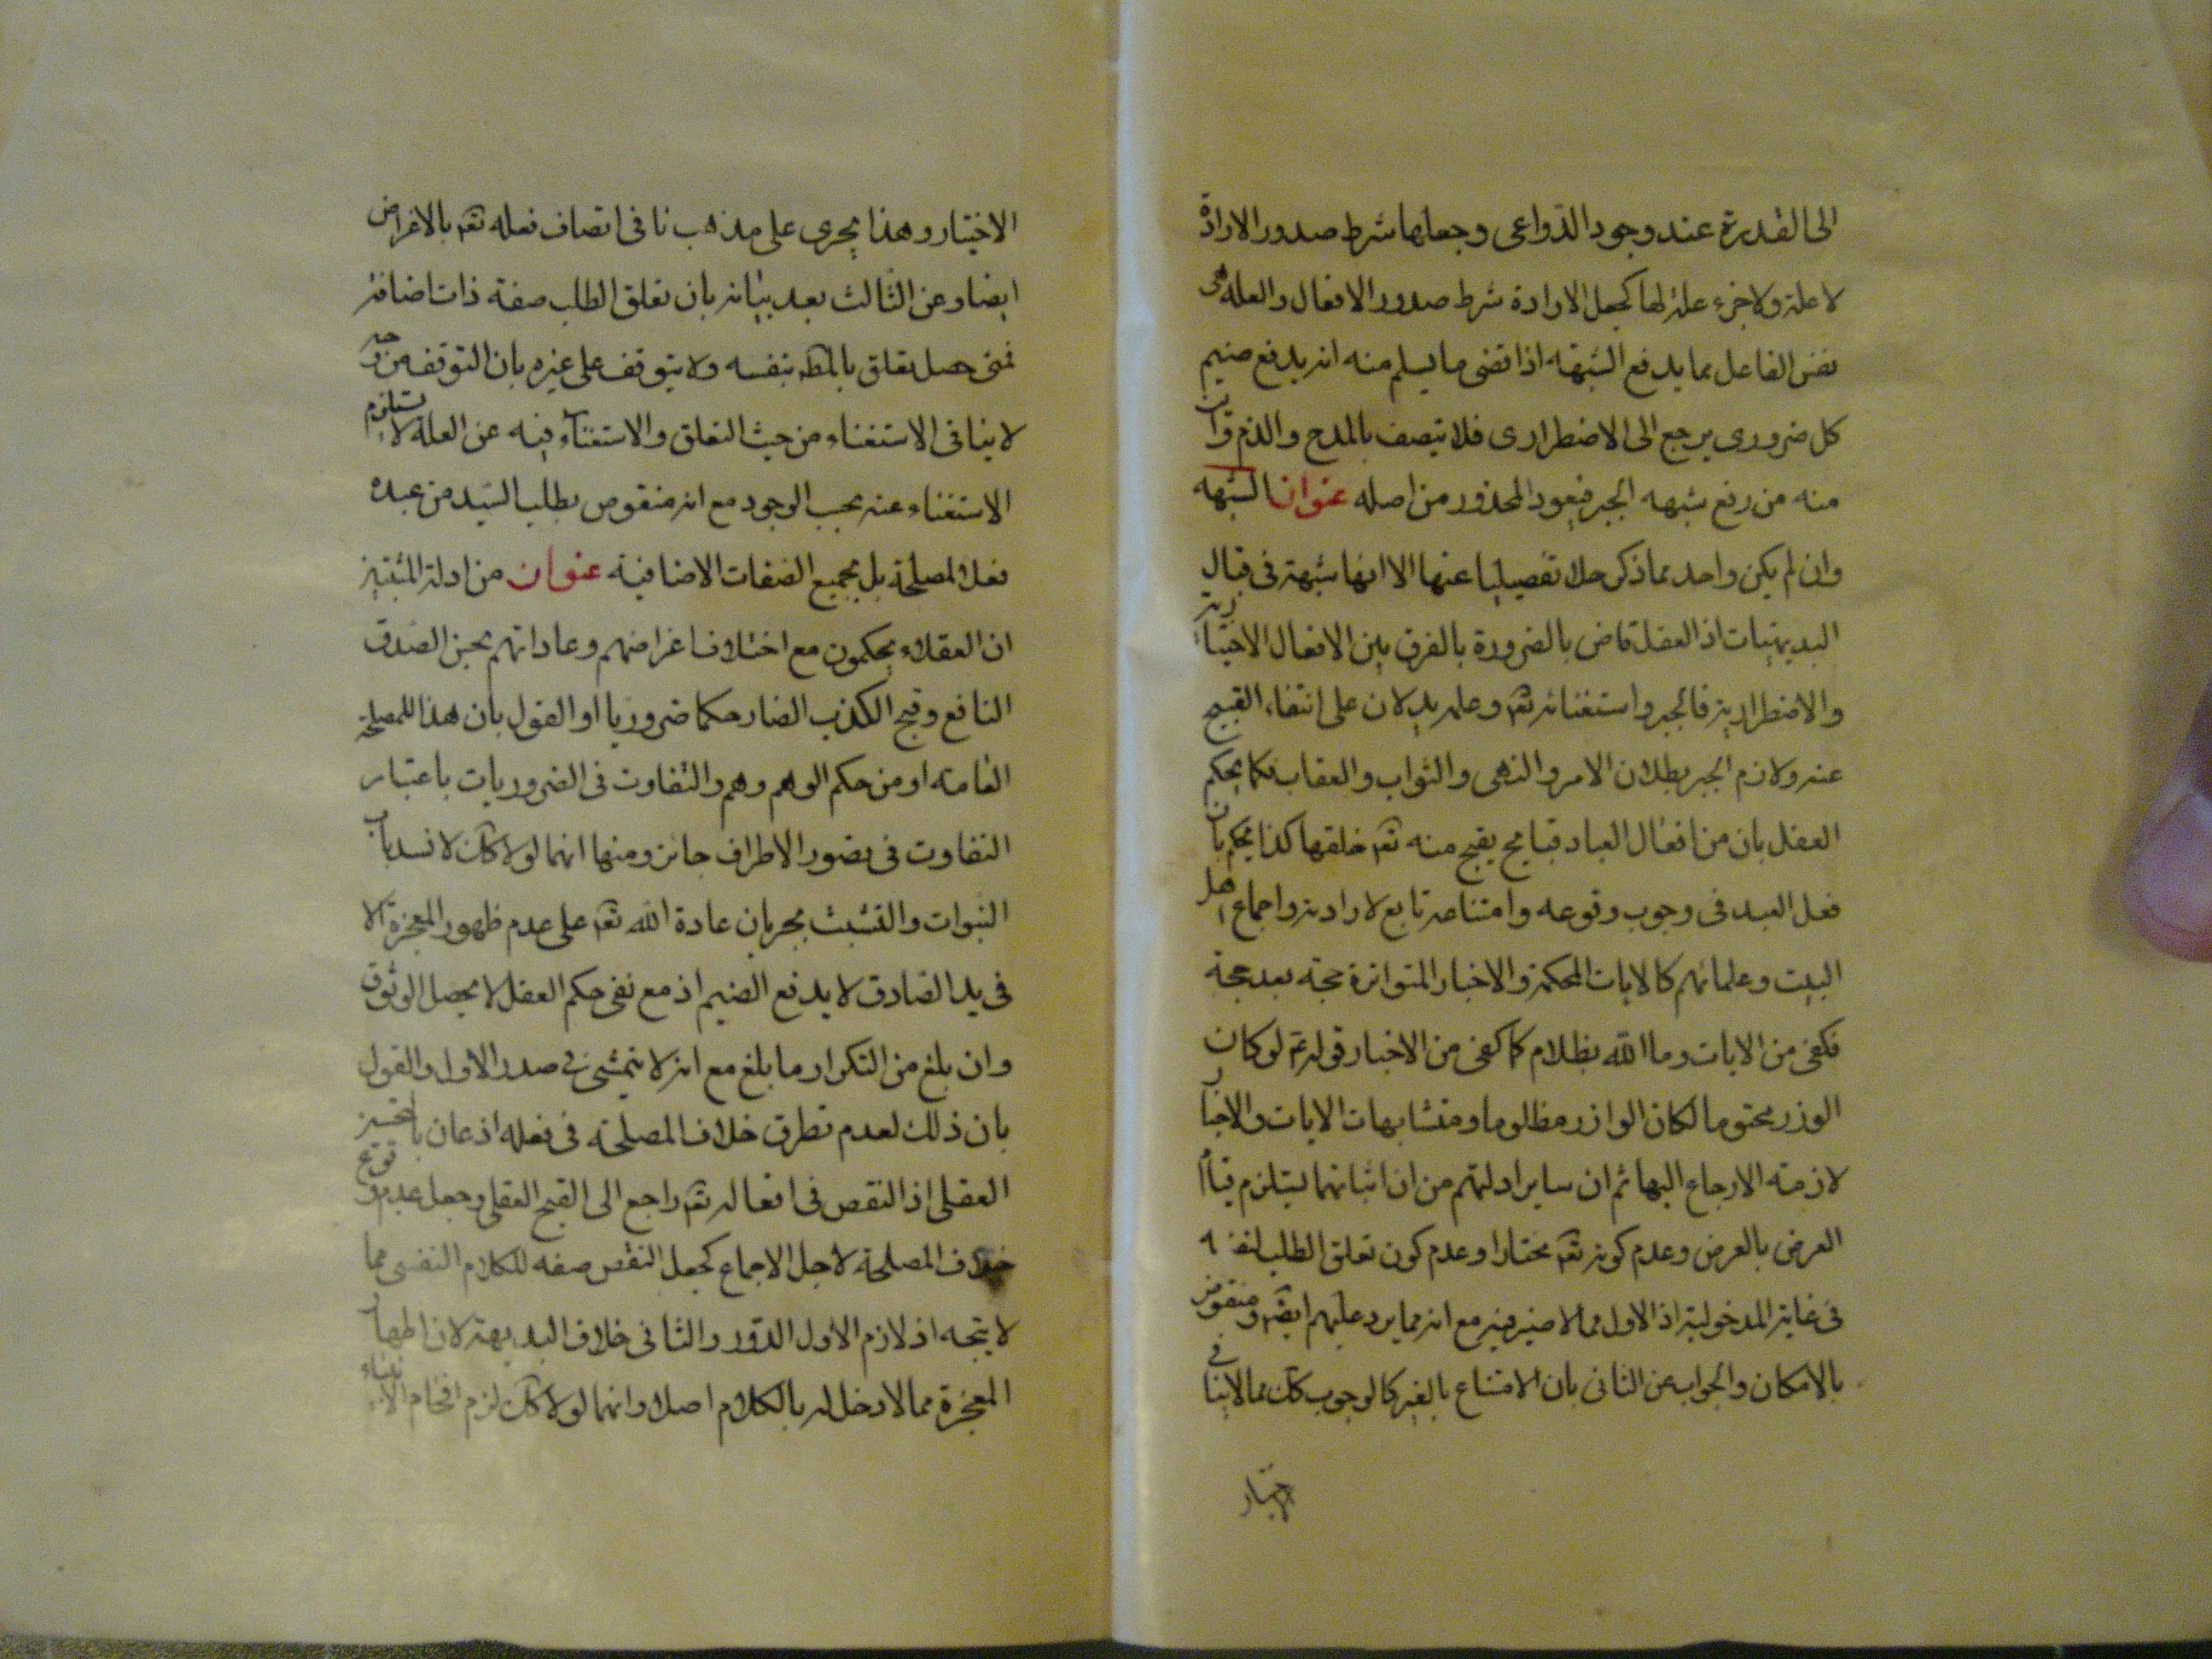 الى القدرة عند وجود الدّواعى وجعلها شرط صدور الارادة
لا علة ولا جزء علة لها كجعل الارادة شرط صدور الافعال والعلة هى
نفس الفاعل بما يدفع الشبهة اذا تقضى ما يسلم منه انه يدفع ضيم
كل ضرورى يرجع الى الاضطرارى فلا يتصف بالمدح والذم وان
منه من رفع شبهه الجبر فيعود المحذور من اصله عنوان الشبهه
وان لم يكن واحد مما ذكر حلا تفصيليا عنها الا انها شبهة فى قبال
البديهيات اذ العقل قاض بالضرورة بالفرق بين الافعال الاختيارية
والاضطرارية فالجبر واستغنائه تعه وعلمه يدلان على انتفاء القبيح
عنه ولازم الجبر بطلان الامر والنهى والثواب والعقاب فكما يحكم
العقل بان من افعال العباد قبايح يقبح منه تعه خلقها كذا يحكم بان
فعل العبد فى وجوب وقوعه وامتناعه تابع لارادته واجماع اهل
البيت وعلمائهم كالايات المحكمة والاخبار المتواترة حجة بعد حجة
فكفى من الايات وما الله بظلام كما كفى من الاخبار قوله ع لو كان
الوزر محتوما لكان الوازر مظلوما ومتشابهات الايات والاخبار
لازمة الارجاع اليها ثم ان ساير ادلتهم من ان اثباتهما يستلزم قيام
العرض بالعرض وعدم كونه تعه مختارا وعدم كون تعلق الطلب لنفسه
فى غاية المدخولية اذ الاول مما لا ضير فيه مع انه مما يرد عليهم ايضه ومنقوض
بالامكان والجواب عن الثانى بان الامتناع بالغير كالوجوب كك مما لا ينافى
الاختيار
الاختيار وهذا يجرى على مذهب نافى اتصاف فعله تعه بالاغراض
ايضا وعن الثالث بعد بيانه بان تعلق الطلب صفة ذات اضافة
فمتى حصل تعلق بالمطه بنفسه ولا يتوقف على غيره بان التوقف من وجه
لا ينافى الاستغناء من حيث التعلق والاستغناء فيه عن العلة لا يستلزم
الاستغناء عنه بحسب الوجود مع انه منقوص بطلب السيد من عبده
فعل المصلحة بل بجميع الصفات الاضافية عنوان من ادلة المثبتين
ان العقلاء يحكمون مع اختلاف اغراضهم وعاداتهم بحسن الصدق
النافع وقبح الكذب الضار حكما ضروريا او القول بان هذا للمصلحة
العامة او من حكم الوهم وهم والتفاوت فى الضروريات باعتبار
التفاوت فى تصور الاطراف جائز ومنها انهما لولا كك لانسد باب
النبوات والتشبث بجريان عادة الله تعه على عدم ظهور المعجزة الا
فى يد الصادق لا يدفع الضيم اذ مع نفى حكم العقل لا يحصل الوثوق
وان بلغ من التكرار ما بلغ مع انه لا يتمشى فى صدر الاول والقول
بان ذلك لعدم تطرق خلاف المصلحة فى فعله اذعان بالتحسين
العقلى اذ النقص فى افعاله تعه راجع الى القبح العقلى وجعل عدم وقوع
خلاف المصلحة لاجل الاجماع كجعل النقص صفه للكلام النفسى مما
لا يتجه اذ لازم الاول الدّور والثانى خلاف البديهة لان اظهار
المعجزة مما لا دخل له بالكلام اصلا وانهما لولا كك لزم افحام الانبياء